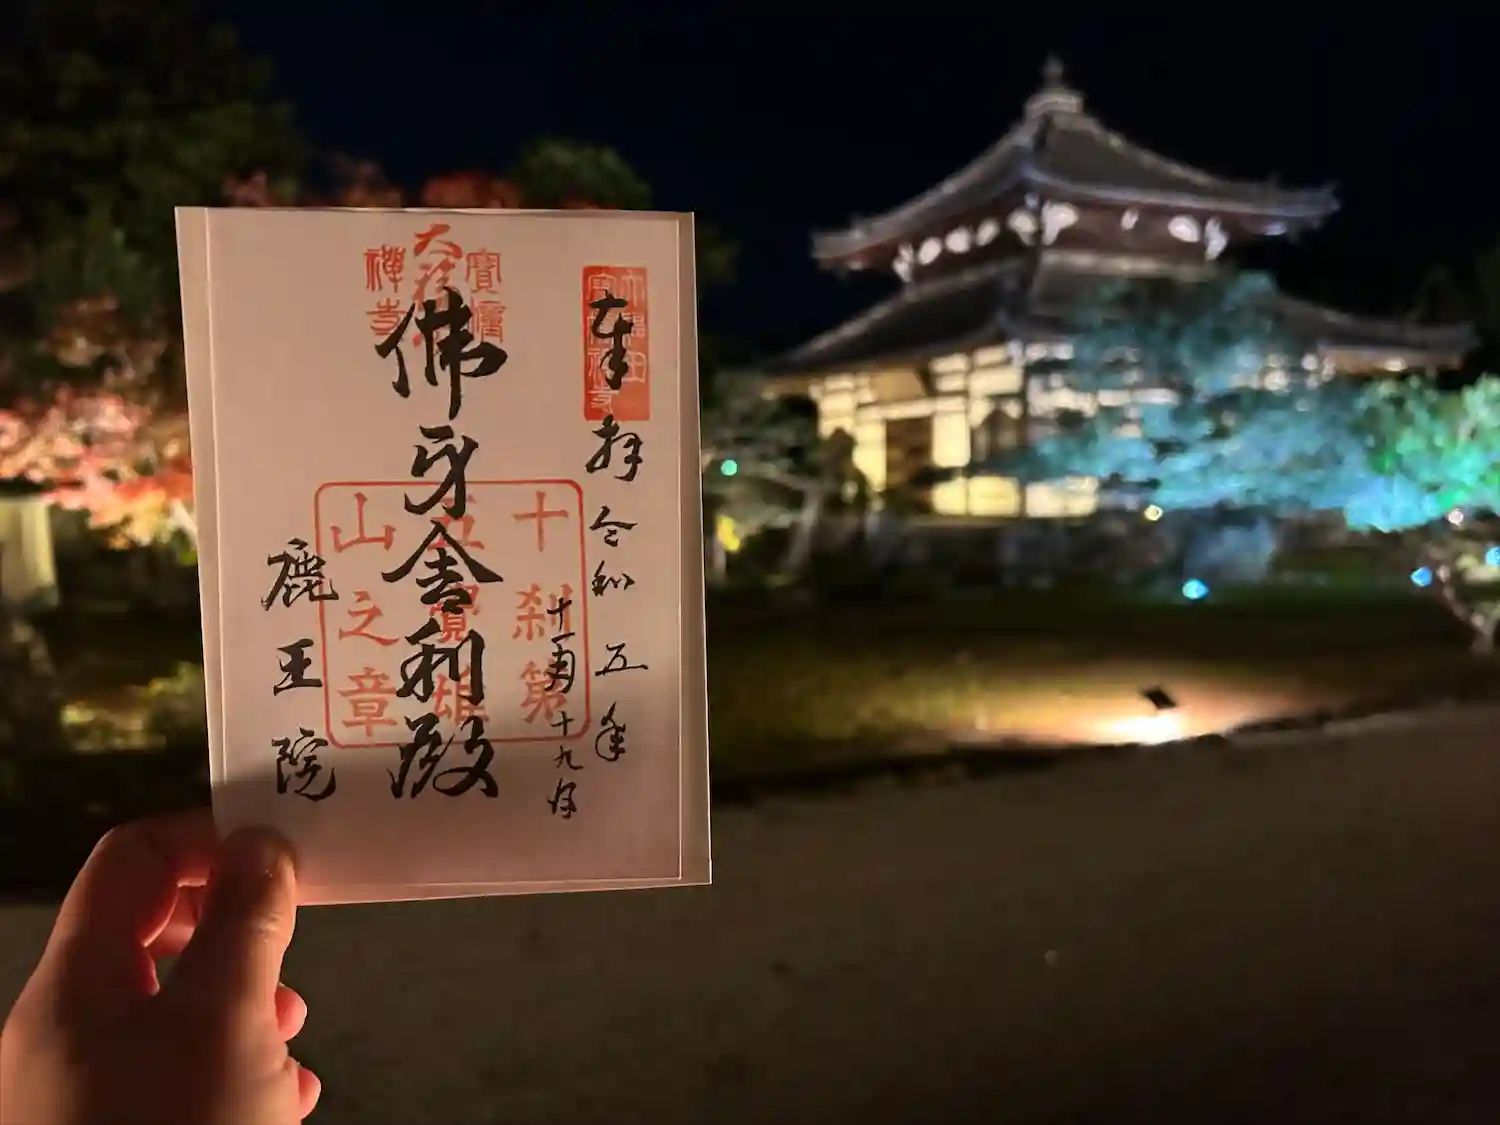 奉拝
令和五年
十一月十九日
佛牙舎利殿
鹿王院
十刹第
五覚雄
山之章
寶幢
禅寺